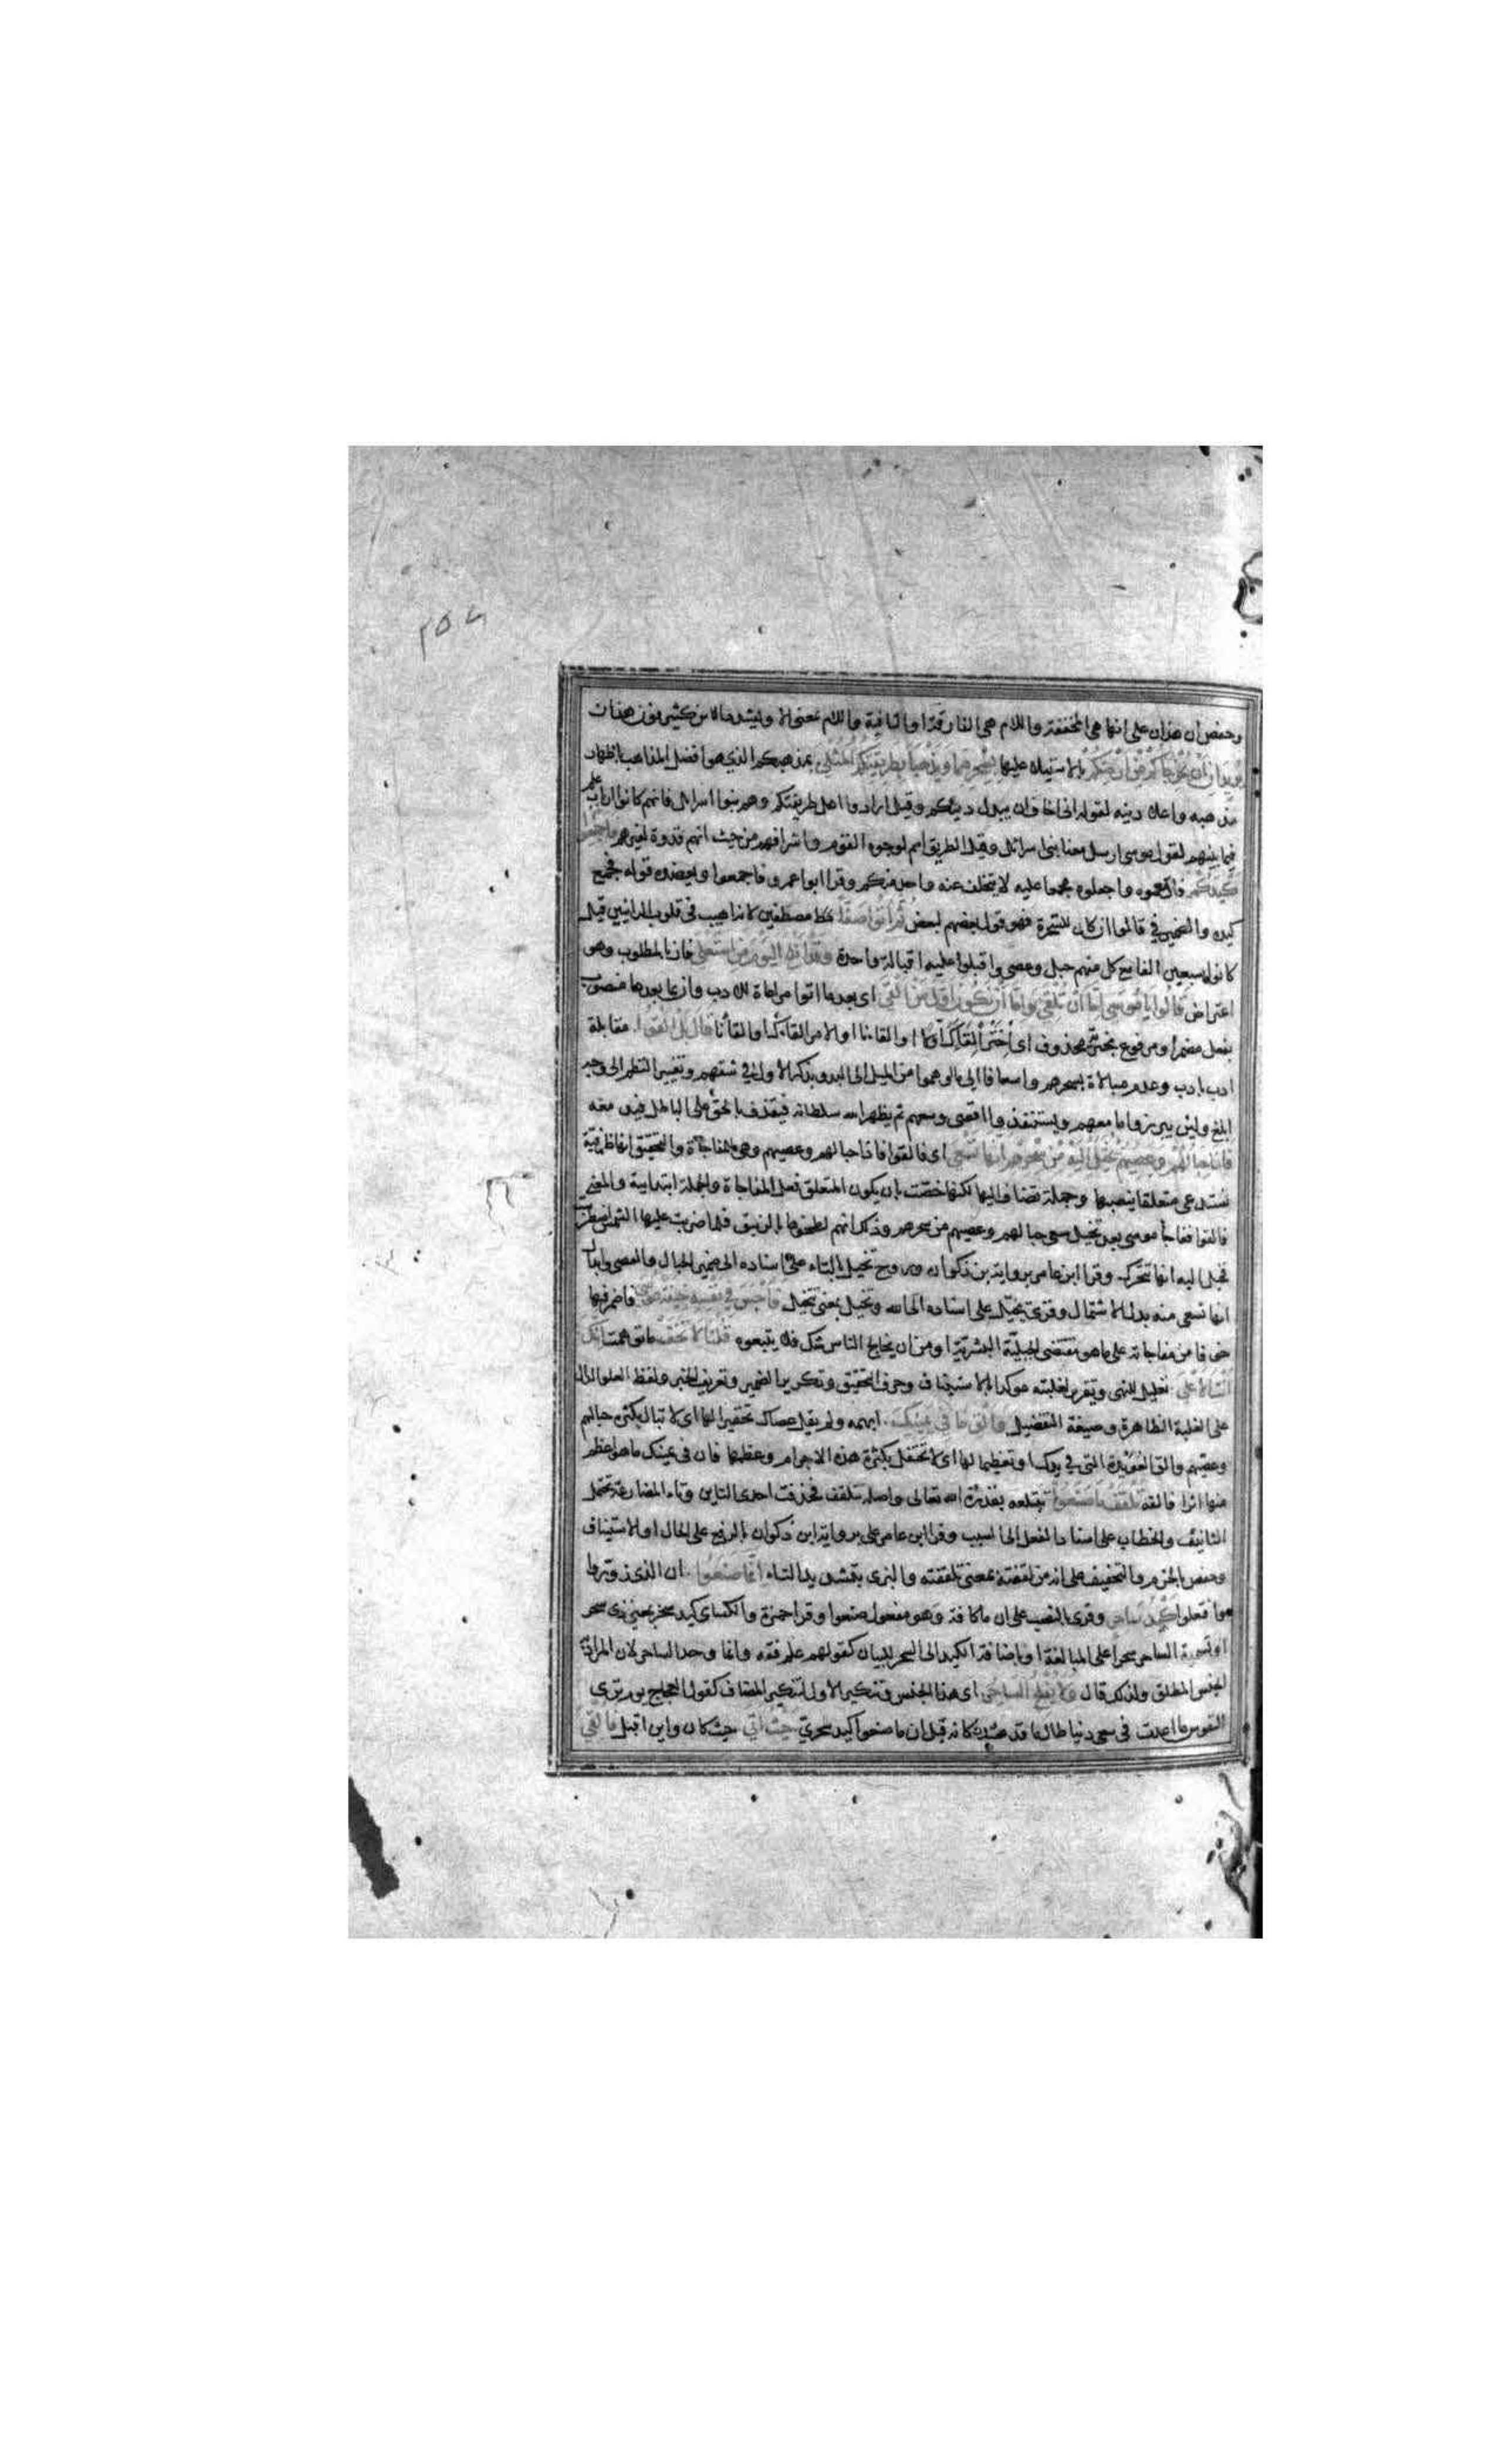 ٢٥٧
وحفص ان هذان على انها هي المخففة واللام هي الفارقة او النافية واللام بمعنى الا ويشدد ابن كثير نون هذان
يريدان ان يخرجاكم من ارضكم بالاستيلاء عليها بسحرهما ويذهبا بطريقتكم المثلى بمذهبكم الذي هو افضل المذاهب باظهار
مذهبه واعلاء دينه لقوله اني اخاف ان يبدل دينكم وقيل ارادوا اهل طريقتكم وهم بنوا اسرائل فانهم كانوا ارباب علم
فيما بينهم لقول موسى ارسل معنا بني اسرائل وقيل الطريقة اسم لوجوه القوم واشرافهم من حيث انهم قدوة لغيرهم فاجمعوا
كيدكم فازمعوه واجعلوه مجمعا عليه لا يتخلف عنه واحد منكم وقرا ابو عمرو فاجمعوا ويعضده قوله فجمع
كيده والضمير في قالوا ان كان للسحرة فهو قول بعضهم لبعض ثم ائتوا صفا مصطفين لانه اهيب في قلوب الرائين قيل
كانوا سبعين الفا مع كل منهم حبل وعصى واقبلوا عليه اقبالة واحدة وقد افلح اليوم من استعلى فاز بالمطلوب وهو
اعتراض قالوا يا موسى اما ان تلقي واما ان نكون اول من القى اي بعد ما اتوا مراعاة للادب وان بما بعدها منصوب
بفعل مضمر او مرفوع بخبرية محذوف اي اختر القاءك اولا او القاءنا او الامر القاؤك او القاؤنا قال بل القوا مقابلة
ادب بادب وعدم مبالاة بسحرهم واسعافا الى ما اوهموا من الميل الى البدو بذكر الاول في شقهم وتغيير النظم الى وجه
ابلغ ولان يبرزوا ما معهم ويستنفذوا اقصى وسعهم ثم يظهر الله سلطانه فيقذف بالحق على الباطل فيدمغه
فاذا حبالهم وعصيهم يخيل اليه من سحرهم انها تسعى اي فالقوا فاذا حبالهم وعصيهم وهي للمفاجأة والتحقيق انها ظرفية
تستدعي متعلقا ينصبها وجملة تضاف اليها لكنها خصت بان يكون المتعلق فعل المفاجاة والجملة ابتدائية والمعنى
فالقوا ففاجأ موسى بعد تخيل سعي حبالهم وعصيهم من سحرهم وذلك انهم لطخوها بالزيبق فلما ضربت عليها الشمس اضطربت
فخيل اليه انها تتحرك وقرا ابن عامر برواية بن ذكوان وروح تخيل بالتاء على اسناده الى ضمير الحبال والعصى وابدال
انها تسعى منه بدل الاشتمال وقرئ يخيل على اسناده الى الله وتخيل بمعنى تتخيل فاوجس في نفسه خيفة موسى فاضمر فيها
خوفا من مفاجاته على ما هو مقتضى الجبلة البشرية او من ان يخالج الناس شك فلا يتبعوه قلنا لا تخف ما توهمت انك
انت الاعلى تعليل للنهي وتقرير لغلبته موكدا بالاستيناف وحرف التحقيق وتكرير الضمير وتعريف الخبر ولفظ العلو الدال
على الغلبة الظاهرة وصيغة التفضيل والق ما في يمينك ابهمه ولم يقل عصاك تحقيرا لها اي لا تبال بكثرة حبالهم
وعصيهم والق العويدة التي في يدك او تعظيما لها اي لا تحتفل بكثرة هذه الاجرام وعظمها فان في يمينك ما هو اعظم
منها اثرا فالقه تلقف ما صنعوا تبتلعه بقدرة الله تعالى واصله تتلقف فحذفت احدى التاين وتاء المضارعة تحتمل
التانيث والخطاب على اسناد الفعل الى السبب وقرا ابن عامر على برواية ابن ذكوان بالرفع على الحال او الاستيناف
وحفص بالجزم والتخفيف على انه من لقفته بمعنى تلقفته والبزي بتشديد التاء انما صنعوا ان الذي زوروا
وافتعلوا كيد ساحر وقرئ بالنصب على ان ما كافة وهو مفعول صنعوا وقرا حمزة والكسائ كيد سحر بمعنى ذي سحر
او تسمية الساحر سحرا على المبالغة او باضافة الكيد الى السحر للبيان كقولهم علم فقه وانما وحد الساحر لان المراد به
الجنس المطلق ولذلك قال ولا يفلح الساحر اي هذا الجنس وتنكير الاول لتنكير المضاف كقول العجاج يوم ترى
النفوس ما اعدت في سعي دنيا طال ما قد مدت كانه قيل ان ما صنعوا كيد سحري حيث اتى حيث كان واين اقبل فالقي